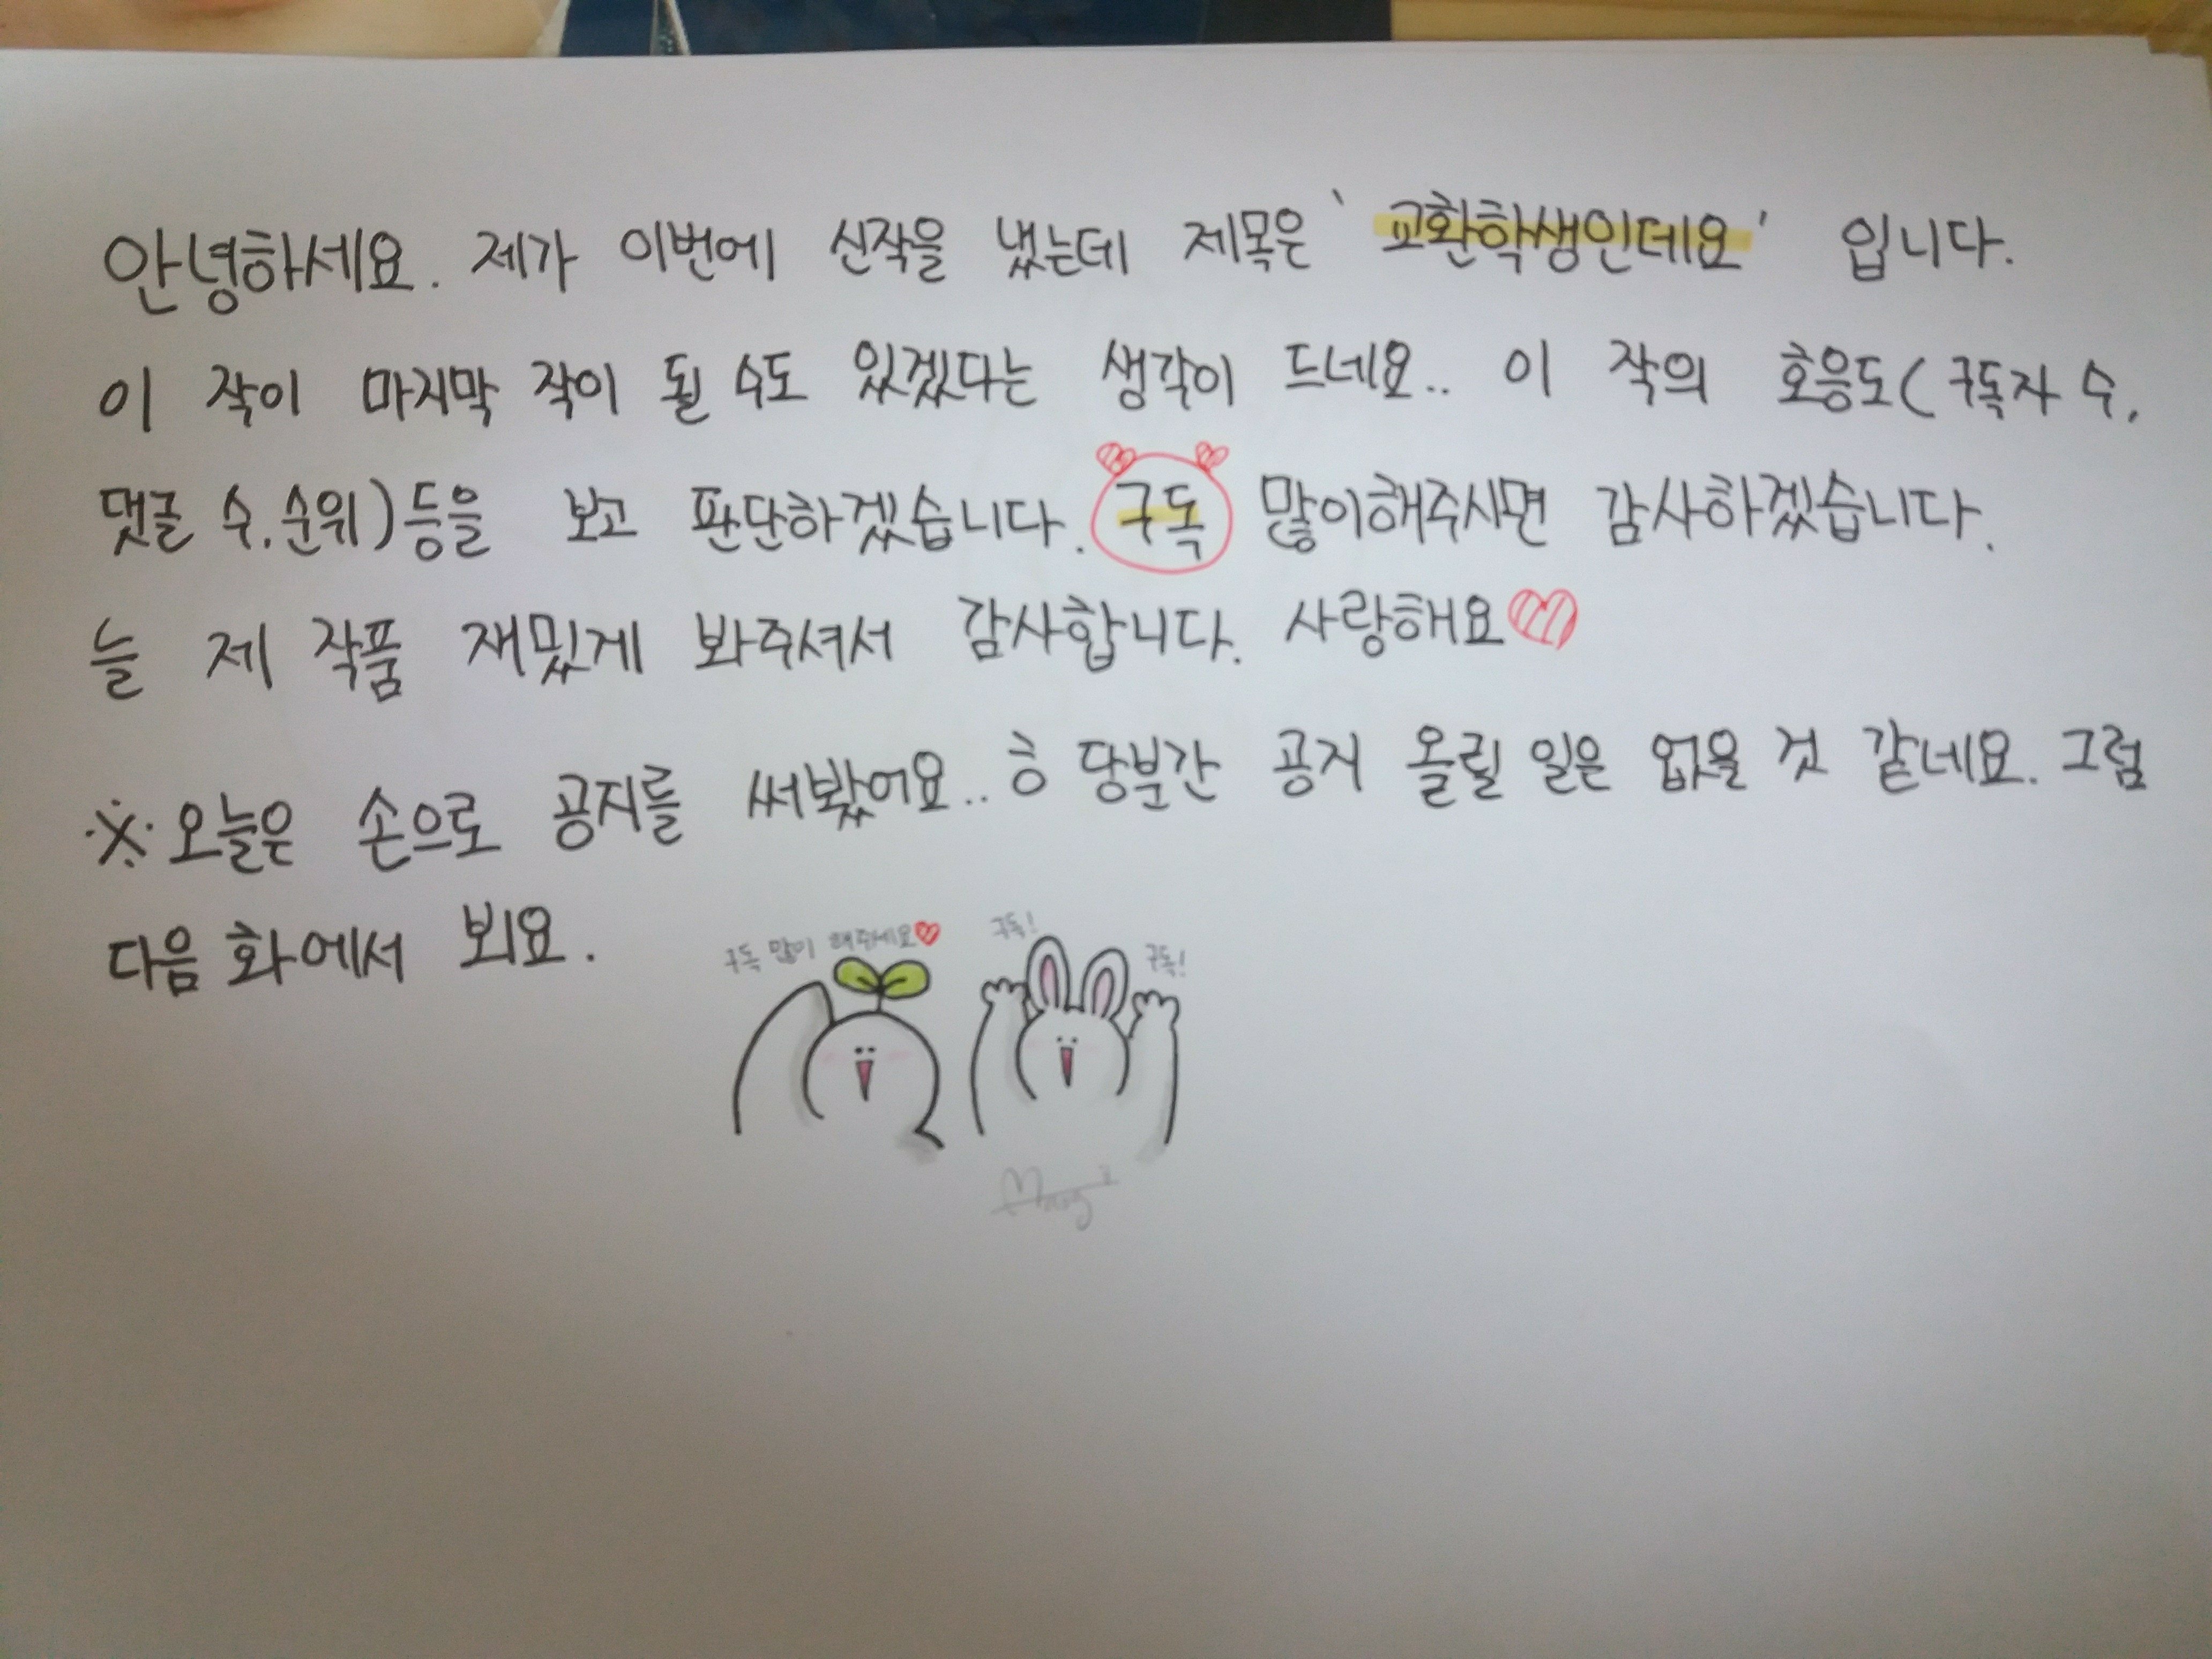 안녕하세요. 제가 이번에 신작을 냈는데 제목은 '교환학생인데요' 입니다.
이 작이 마지막 작이 될 수도 있겠다는 생각이 드네요.. 이 작의 호응도(구독자 수,
댓글 수, 순위)등을 보고 판단하겠습니다. 구독 많이해주시면 감사하겠습니다.
늘 제 작품 재밌게 봐주셔서 감사합니다. 사랑해요♡
※오늘은 손으로 공지를 써봤어요..ㅎ 당분간 공지 올릴 일은 없을 것 같네요. 그럼
다음 화에서 뵈요.
구독 많이 해주세요♡
구독!
구독!